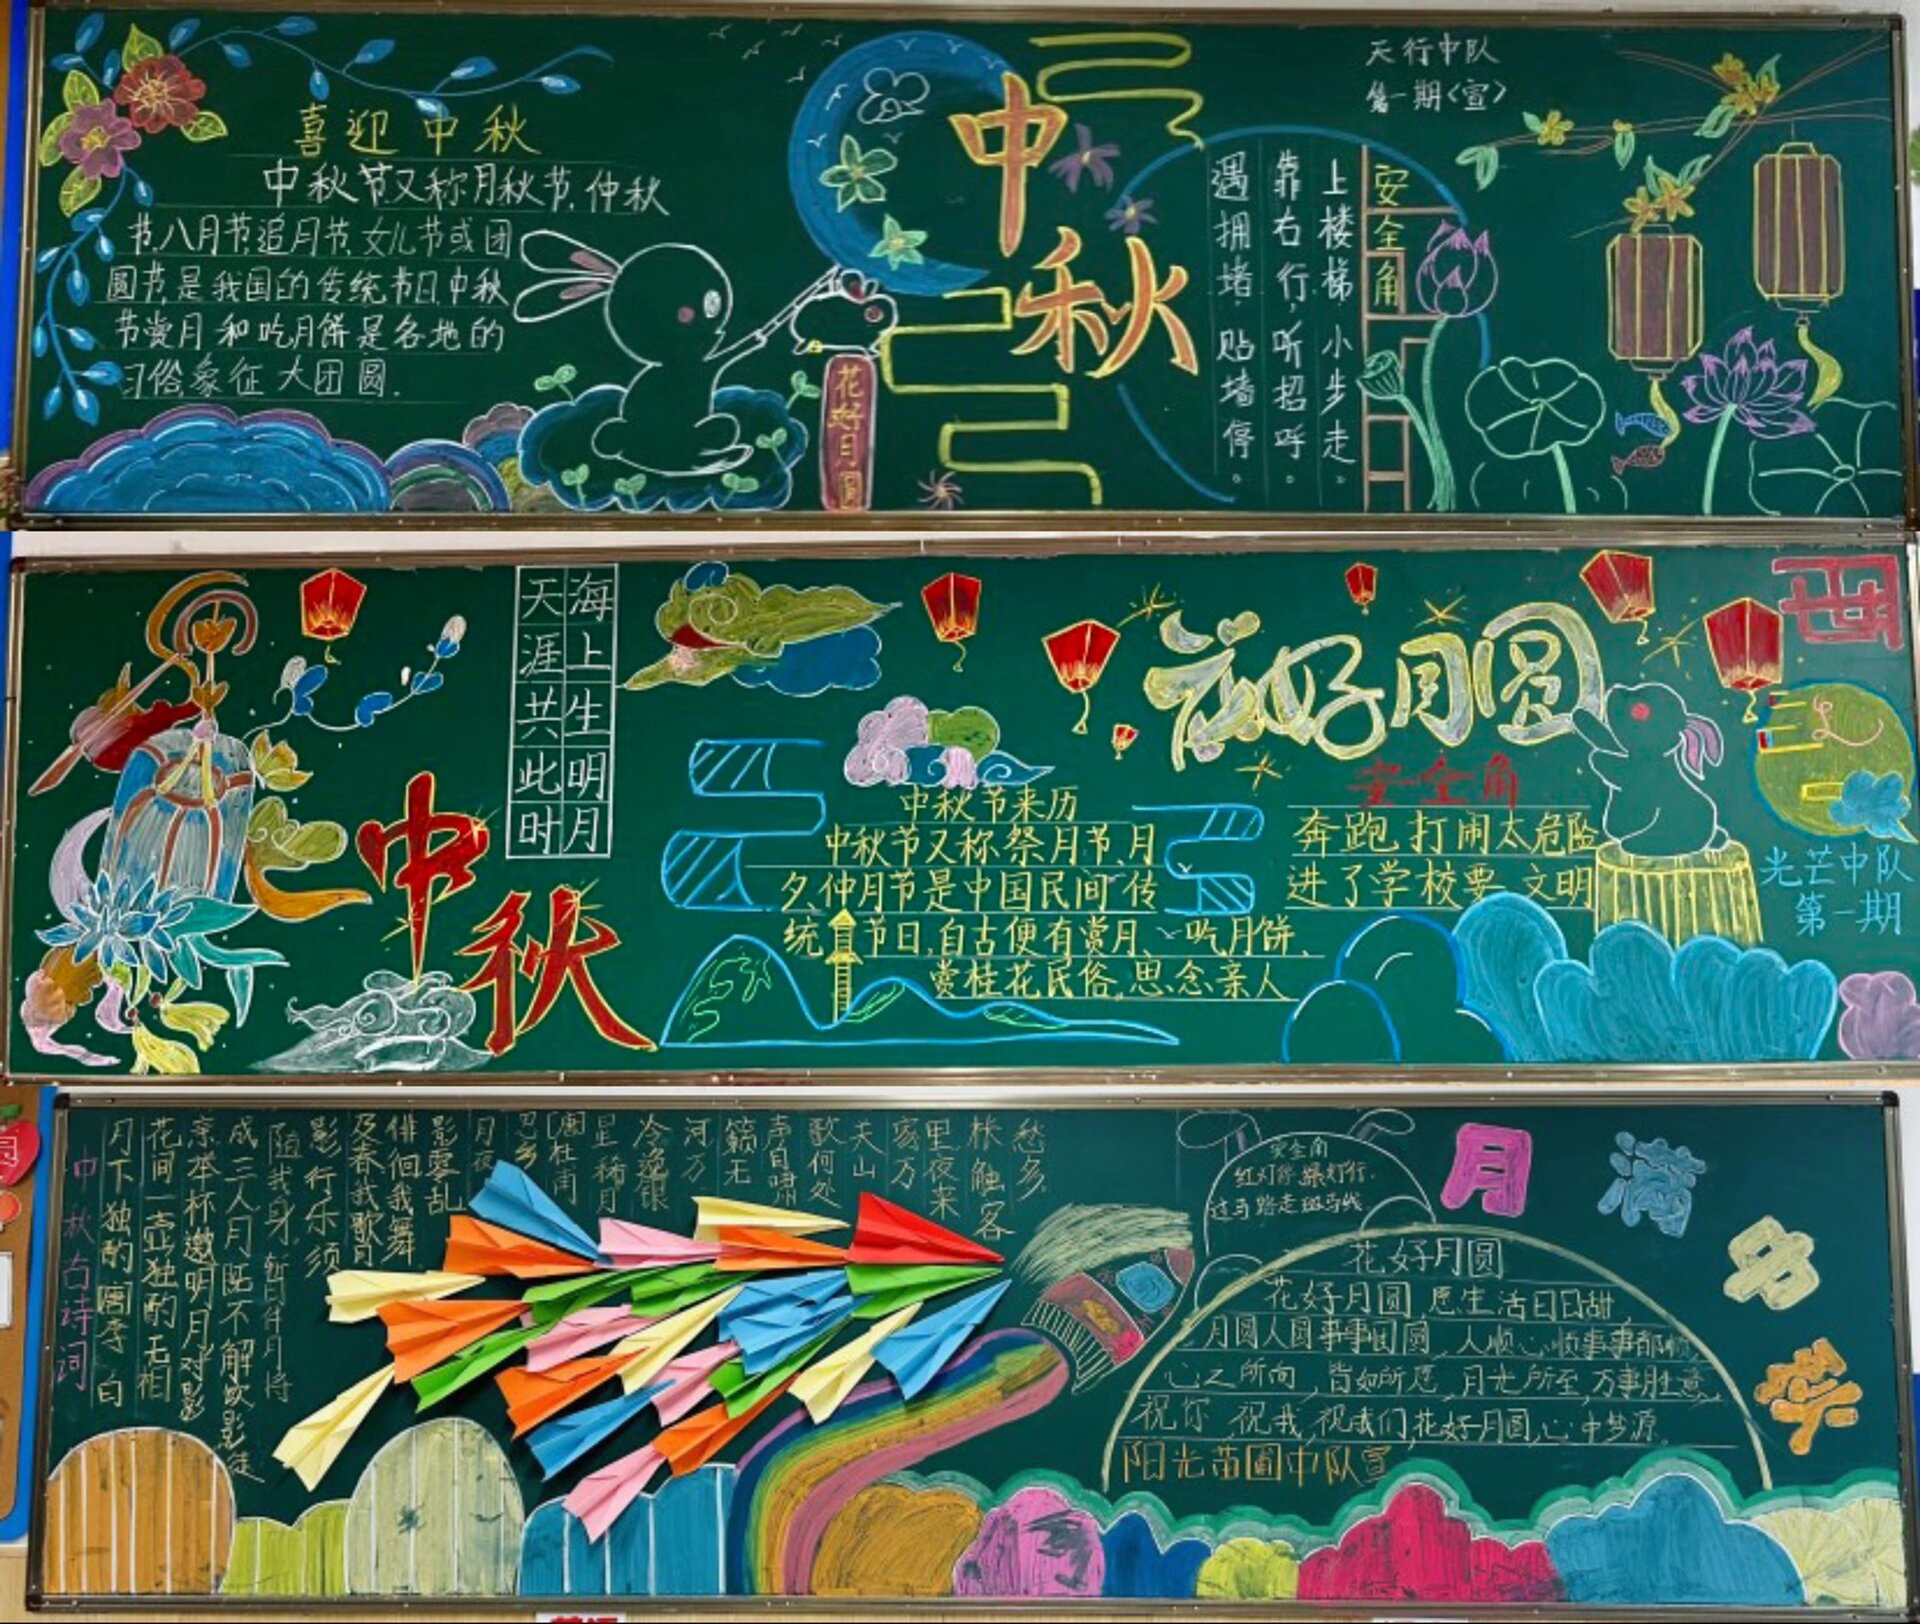 喜迎中秋
中秋节又称月秋节、仲秋
节、八月节、追月节、女儿节或团
圆节,是我国的传统节日,中秋
节赏月和吃月饼是各地的
习俗,象征大团圆.
花好月圆
中秋
天行中队
第一期<宣>
安全角
上楼梯小步走。
靠右行,听招呼。
遇拥堵,贴墙停。
中秋
海上生明月
天涯共此时
花好月圆
中秋节来历
中秋节又称祭月节、月
夕、仲月节是中国民间传
统节日,自古便有赏月、吃月饼、
赏桂花民俗。思念亲人
安全角
奔跑打闹太危险
进了学校要文明
光芒中队
第一期
中秋古诗词
月下独酌 唐 李白
花间一壶独酌无相
亲举杯邀明月对影
成三人月既不解饮影徒
随我身,暂伴月将
影行乐须
及春我歌月
徘徊我舞
影零乱
月夜
唐杜甫
星稀月
冷逸银
河万
籁无
声自啸
歌何处
关山
家万
里夜来
枨触客
愁多
安全角
红灯停绿灯行.
过马路走斑马线
月满中秋
花好月圆
花好月圆,愿生活日日甜,
月圆人圆事事团圆,人顺心顺事事都顺
心之所向,皆如所愿,月光所至,万事胜意,
祝你,祝我,祝我们,花好月圆,心中梦源。
阳光苗圃中队宣